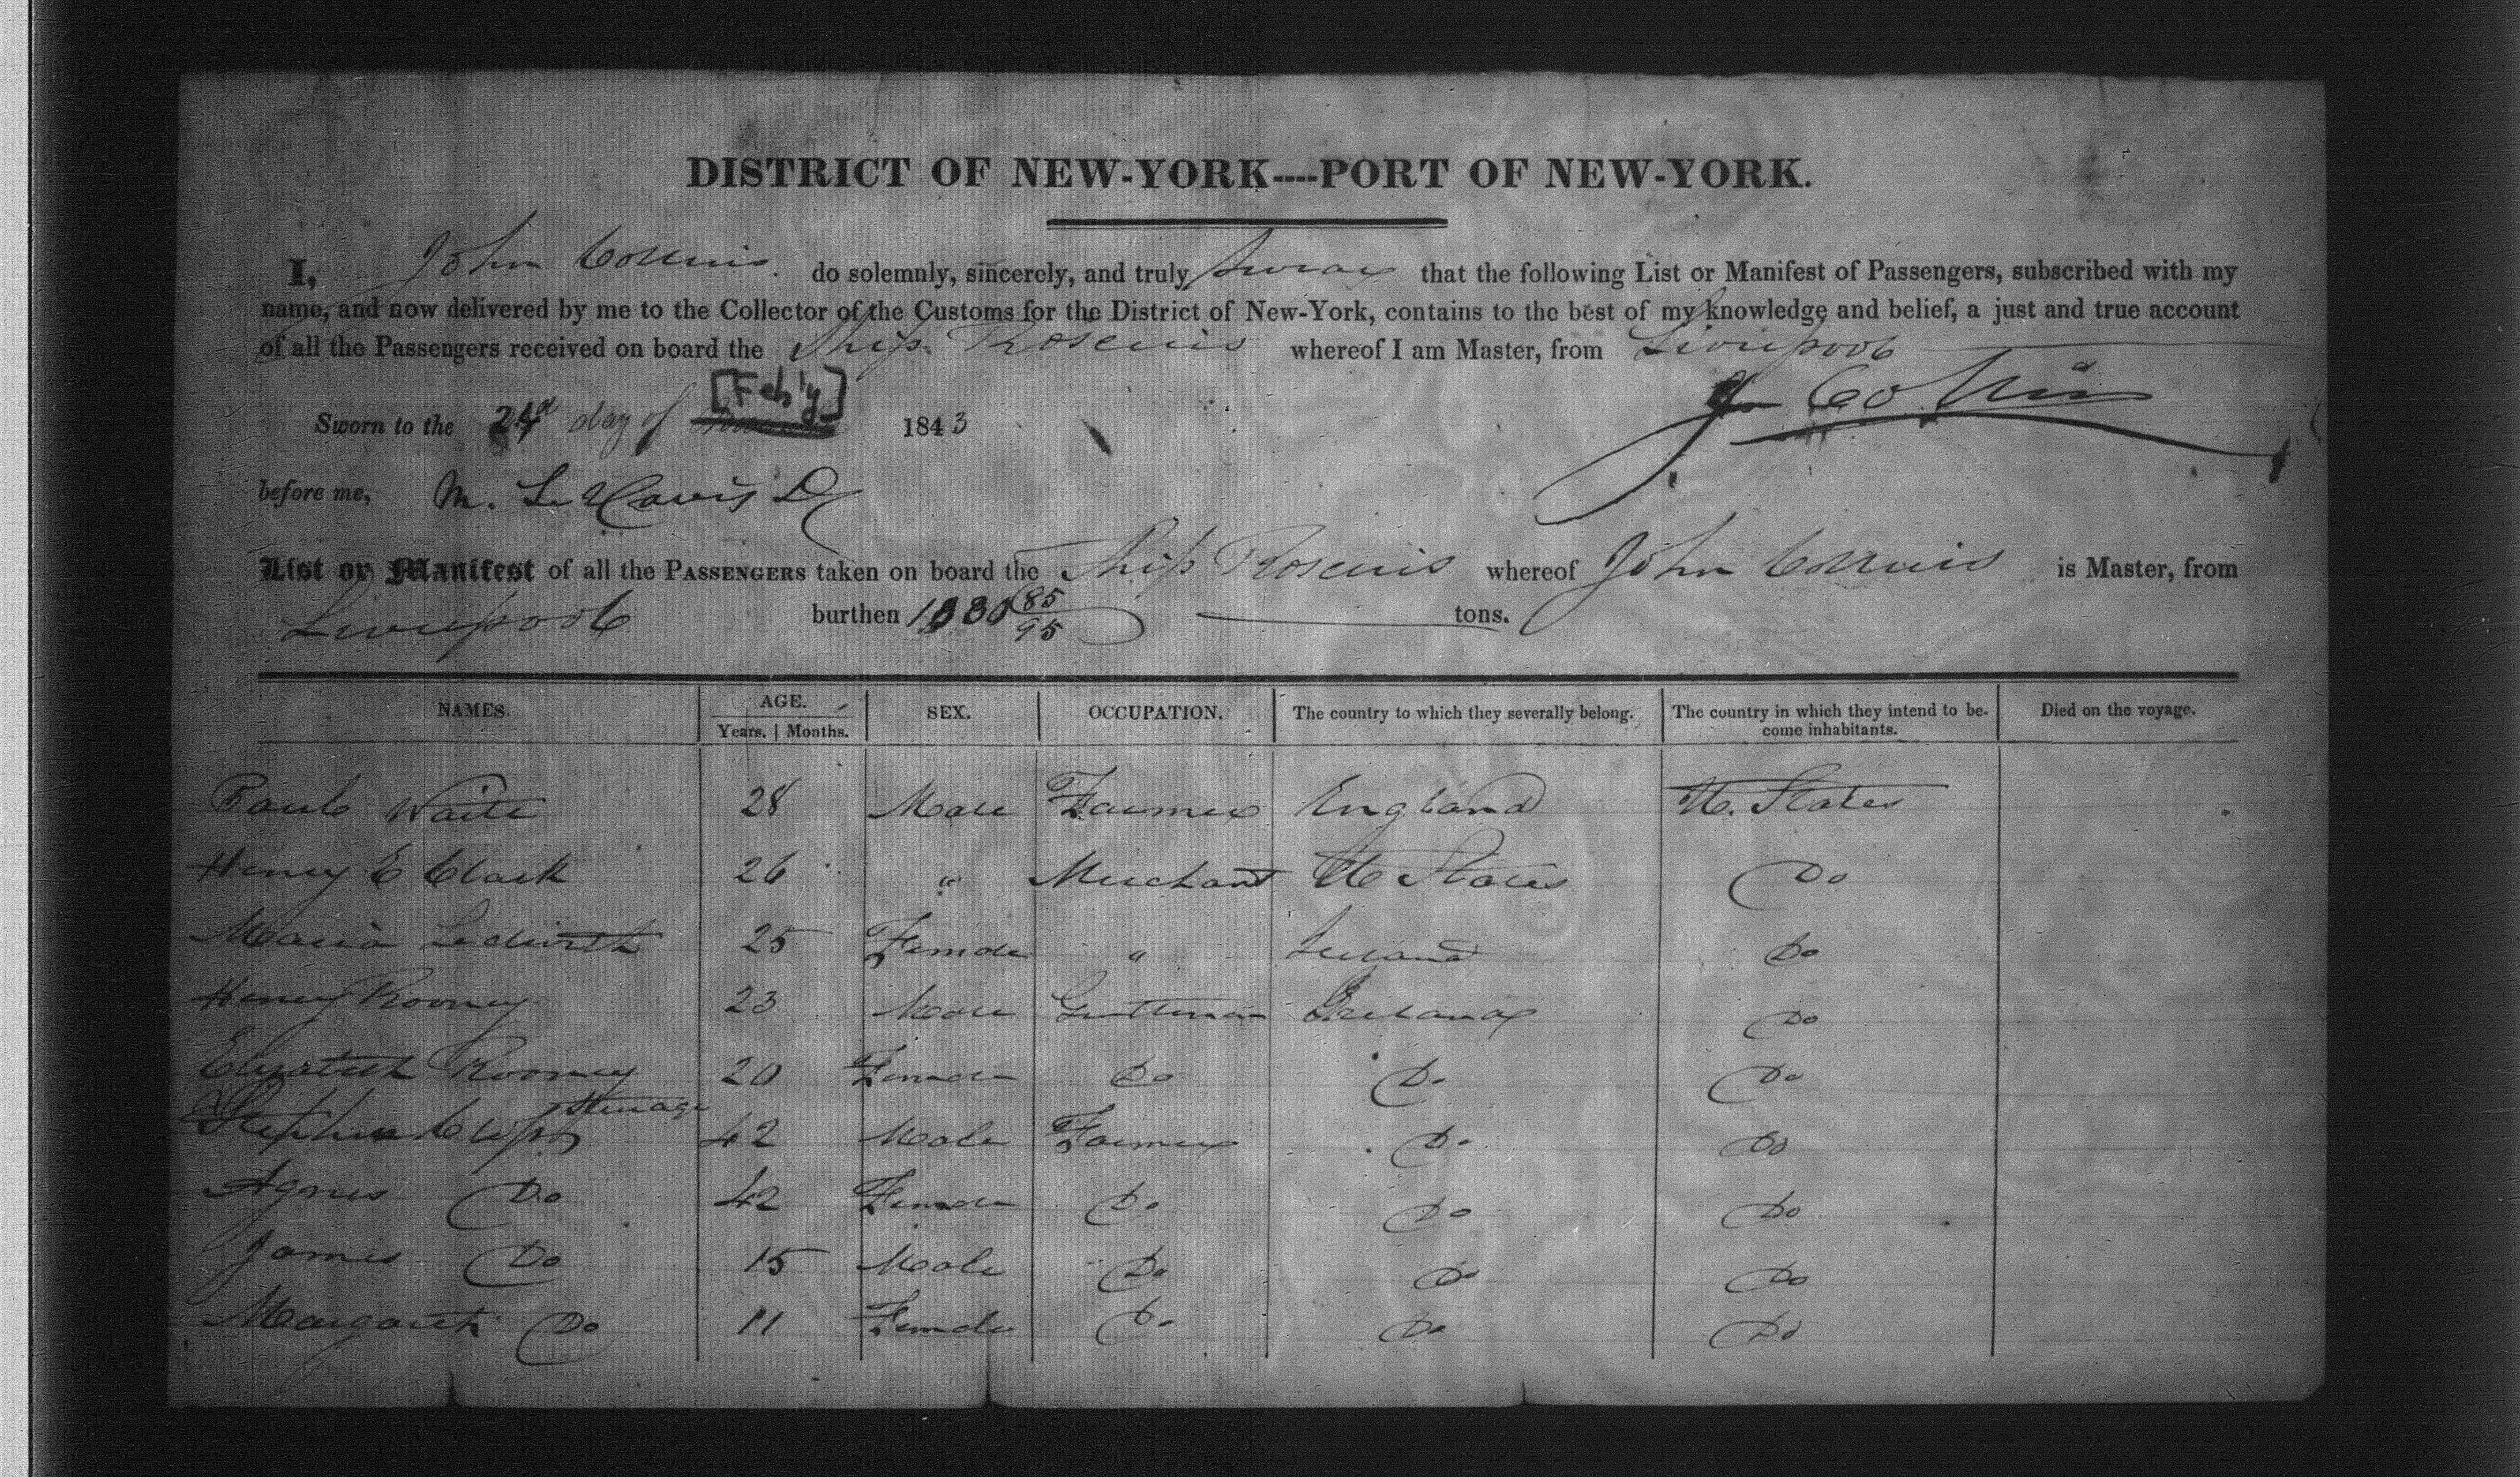 DISTRICT OF NEW-YORK----PORT OF NEW-YORK.
I, John Collins do solemnly, sincerely, and truly swear that the following List or Manifest of Passengers, subscribed with my
name, and now delivered by me to the Collector of the Customs for the District of New-York, contains to the best of my knowledge and belief, a just and true account
of all the Passengers received on board the Ship Roscius whereof I am Master, from Liverpool
[Feb'y]
Jn Collins
Sworn to the 24 day of 1843
before me, M. L. Davis D
List or Manifest of all the PASSENGERS taken on board the Ship Roscius whereof John Collins is Master, from
Liverpool burthen 1030 85/95 tons.
NAMES. AGE. SEX. OCCUPATION. The country to which they severally belong. The country in which they intend to be- Died on the voyage.
Years. Months. come inhabitants.
Paul Waite 28 Male Farmer England U. States
Henry E Clark 26 " Merchant U States Do
Maria Ledwith 25 Female " Ireland Do
Henry Rooney 23 Male Gentleman Ireland Do
Elizabeth Rooney 20 Female Do Do Do
Steerage
Stephen 42 Male Farmer Do Do
Agnes Do 42 Female Do Do Do
James Do 15 Male Do Do Do
Margareth Do 11 Female Do Do Do